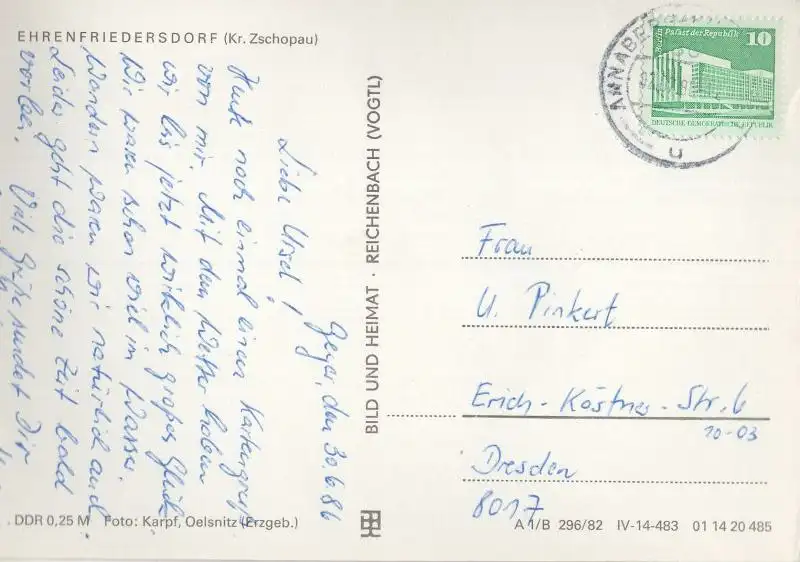 EHRENFRIEDERSDORF (Kr. Zschopau)
Geyer, den 30.6.86
Liebe Ursel!
Heute noch einmal einen Kartengruß
von mir. Mit dem Wetter haben
wir bis jetzt wirklich großes Glück
Wir waren schon viel im Wasser.
Wandern waren wir natürlich auch
Leider geht die schöne Zeit bald
vorbei. Viele Grüße sendet Dir
DDR 0,25 M Foto: Karpf, Oelsnitz (Erzgeb.)
BILD UND HEIMAT · REICHENBACH (VOGTL)
ANNABERG
u
Berlin Palast der Republik 10
DEUTSCHE DEMOKRATISCHE REPUBLIK
Frau
U. Pinkert
Erich-Kästner-Str. 6
10-03
Dresden
8017
A 1/B 296/82 IV-14-483 01 14 20 485